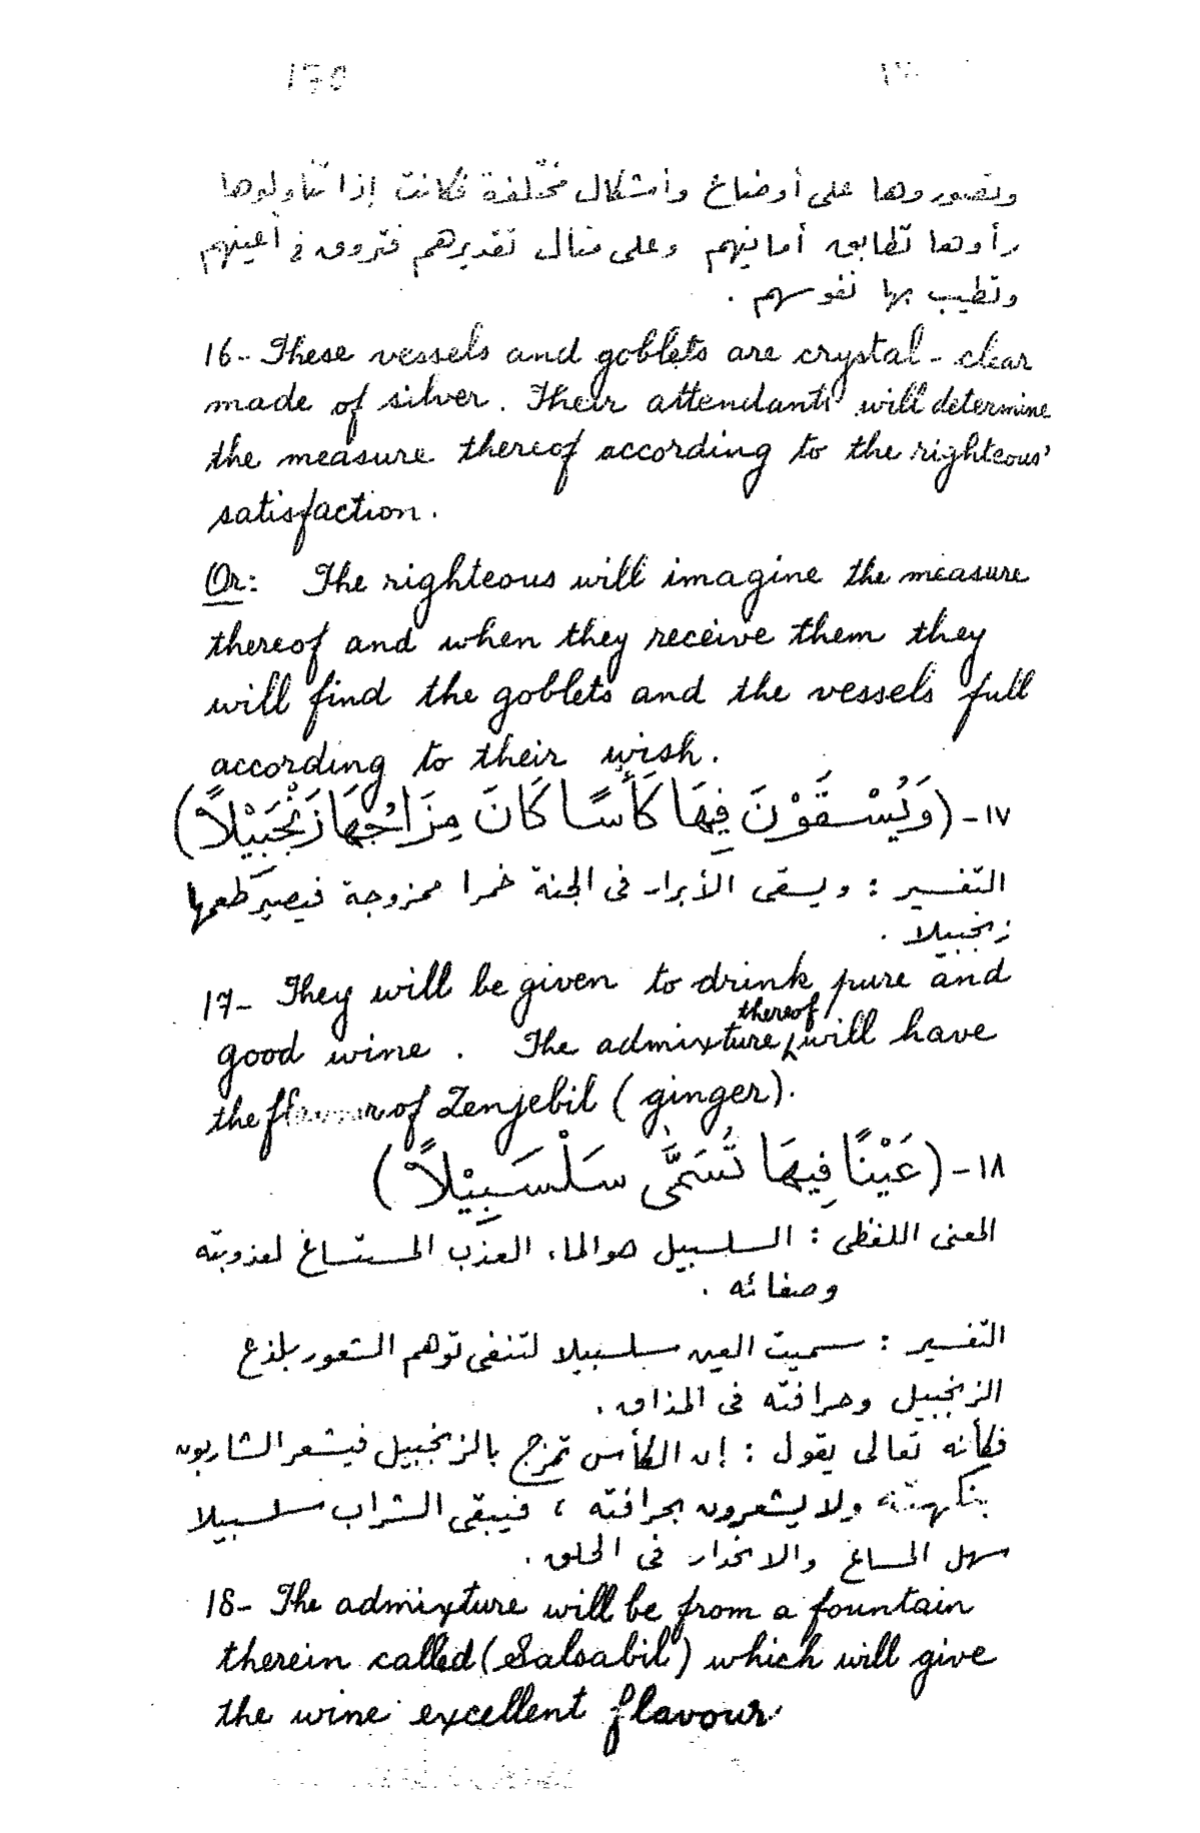 170
وتصوروها على أوضاع وأشكال مختلفة فكانت إذا تناولوها
رأوها تطابق أمانيهم وعلى منال تقديرهم فتروق في أعينهم
وتطيب بها نفوسهم .
16- These vessels and goblets are crystal-clear
made of silver. Their attendants will determine
the measure thereof according to the righteous'
satisfaction.
Or: The righteous will imagine the measure
thereof and when they receive them they
will find the goblets and the vessels full
according to their wish.
١٧- (وَيُسْقَوْنَ فِيهَا كَأْسًا كَانَ مِزَاجُهَا زَنْجَبِيْلاً)
التفسير : ويسقى الأبرار في الجنة خمرا ممزوجة فيصير طعمها
زنجبيلا .
17- They will be given to drink pure and
good wine. The admixture thereof will have
the flavour of Zenjebil (ginger).
١٨- (عَيْنًا فِيهَا تُسَمَّى سَلْسَبِيْلاً)
المعنى اللفظي : السلسبيل هو الماء العذب المستساغ لعذوبته
وصفائه .
التفسير : سميت العين سلسبيلا لتنفي توهم الشعور بلذع
الزنجبيل وحرافته في المذاق .
فكأنه تعالى يقول : إن الكأس تمزج بالزنجبيل فيشعر الشاربون
بنكهته ولا يشعرون بحرافته ، فيبقى الشراب سلسبيلا
سهل المساغ والانحدار في الحلق .
18- The admixture will be from a fountain
therein called (Salsabil) which will give
the wine excellent flavour